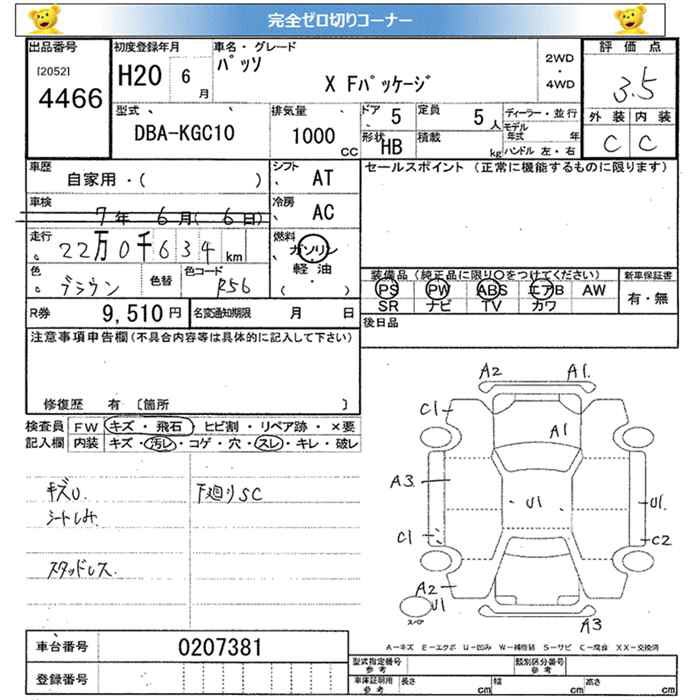 完全ゼロ切りコーナー
出品番号
[2052]
4466
初度登録年月
H20 6月
車名・グレード
パッソ
X Fパッケージ
2WD
・
4WD
評価点
3.5
外装 内装
C C
型式
DBA-KGC10
排気量
1000 CC
ドア 5
定員 5人
形状 HB
積載 kg
ディーラー・並行
モデル年式 年
ハンドル 左・右
車歴
自家用・( )
車検
7年 6月( 6日)
走行
22万0千634km
色
ブラウン
色替
色コード
R56
シフト
AT
冷房
AC
燃料
ガソリン
軽油
( ・ )
セールスポイント(正常に機能するものに限ります)
装備品(純正品に限り〇をつけてください)
PS PW ABS エアB AW
SR ナビ TV カワ
新車保証書
有・無
R券 9,510円
名変通知期限 月 日
後日品
注意事項申告欄(不具合内容等は具体的に記入して下さい)
修復歴 有 〔箇所 〕
検査員記入欄
FW キズ・飛石・ヒビ割・リペア跡・×要
内装 キズ・汚レ・コゲ・穴・スレ・キレ・破レ
キズU.
シートしみ.
スタッドレス.
下廻りSC
A2 A1.
C1
A1
A3
U1
U1.
C1
C2
A2
U1
スペア
A3
A-キズ E-エクボ U-凹み W-補修跡 S-サビ C-腐食 XX-交換済
車台番号 0207381
登録番号
型式指定番号 参考
類別区分番号 参考
車庫証明用 参考
長さ cm 幅 cm 高さ cm